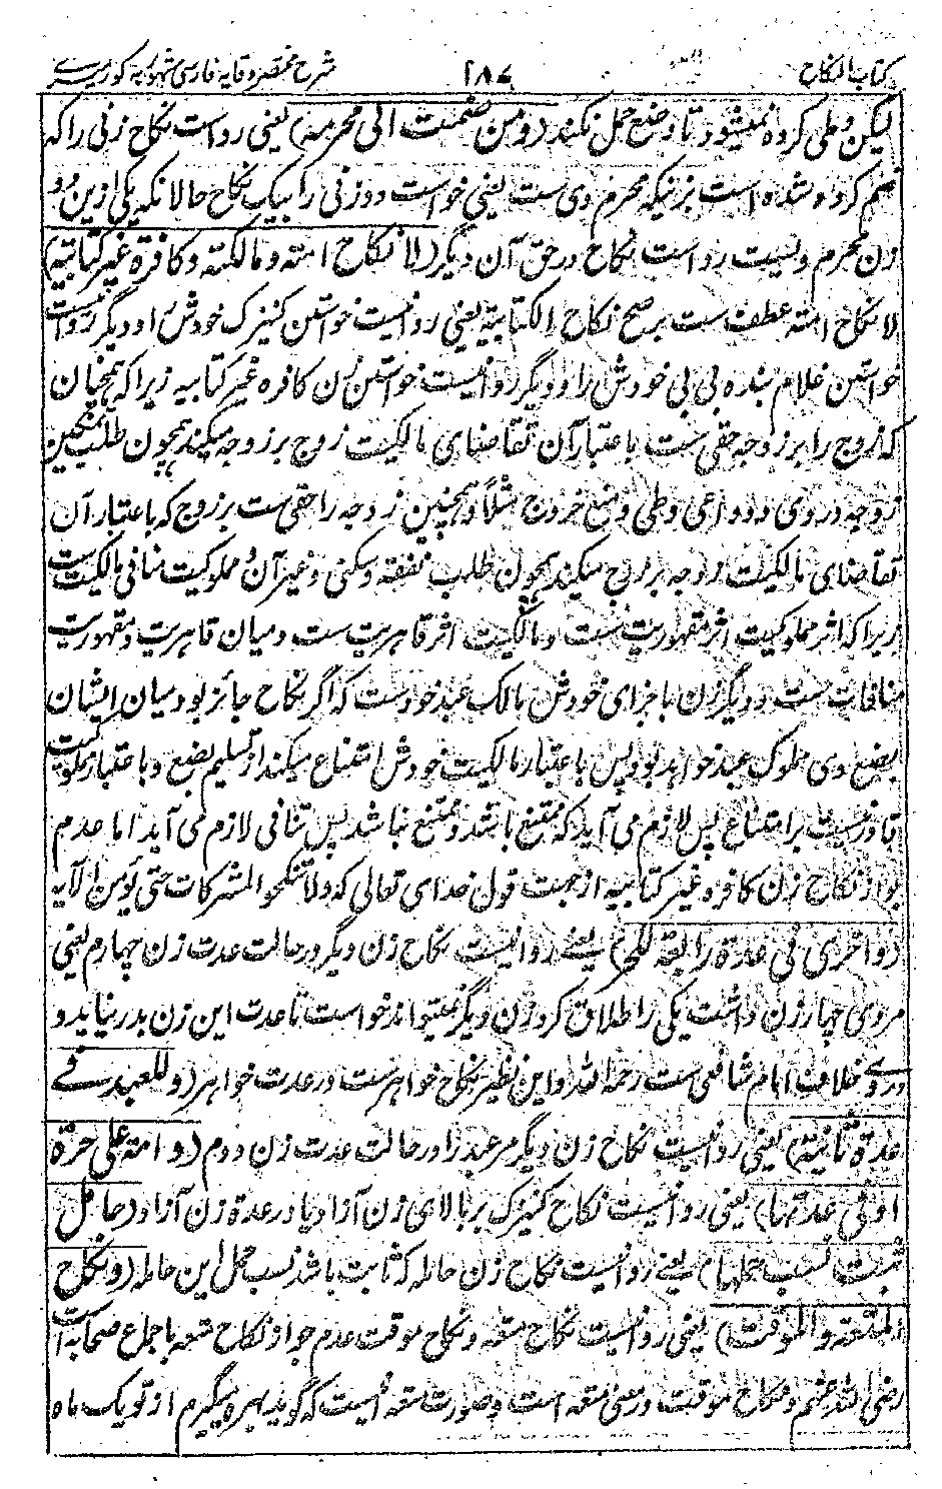 کتاب النکاح ۱۸۷ شرح مختصر وقایه فارسی مشهور به کور میری
لیکن وطی کرده نمیشود تا وضع حمل نکند (و من ضمت الی محرمه) یعنی رواست نکاح زنی را که
ضم کرده شده است بزنیکه محرم وی ست یعنی خواست دو زنی را بیک نکاح حالانکه یکی ازین دو
زن محرم ویست رواست نکاح در حق آن دیگر (لا نکاح امته و مالکته و کافرة غیر کتابیة)
لا نکاح امته عطف ست بر صح نکاح الکتابیة یعنی روا نیست خواستن کنیزک خودش را و دیگر روا نیست
خواستن غلام بنده بی بی خودش را و دیگر روا نیست خواستن زن کافره غیر کتابیه زیرا که همچنان
که زوج را بر زوجه حقی ست باعتبار آن تقاضای مالکیت زوج بر زوجه میکند همچون طلب تمکین
زوجه در وی و دواعی وطی و منع خروج مثلاً و همچنین زوجه را حقی ست بر زوج که باعتبار آن
تقاضای مالکیت زوجه بر زوج میکند همچون طلب نفقه و سکنی و غیر آن و مملوکیت منافی مالکیت ست
زیرا که اثر مملوکیت اثر مقهوریت ست و مالکیت اثر قاهریت ست و میان قاهریت و مقهوریت
منافات ست و دیگر زن با جزای خودش مالک عبد خودست که اگر نکاح جائز بود میان ایشان
بضع وی مملوک عبد خواهد بود پس باعتبار مالکیت خودش امتناع میکند از تسلیم بضع و باعتبار مملوکیت
قادر نیست بر امتناع پس لازم می آید که ممتنع باشد و ممتنع نباشد پس تنافی لازم می آید اما عدم
جواز نکاح زن کافره غیر کتابیه از جهت قول خدای تعالی که ولا تنکحوا المشرکات حتی یؤمن الآیه
(و اخری فی عدة رابعة للحر) یعنے روا نیست نکاح زن دیگر در حالت عدت زن چهارم یعنی
مردی چهار زن داشت یکی را طلاق کرد زن دیگر نمیتواند خواست تا عدت این زن بدر نیاید و
دروے خلاف امام شافعی ست رحمه الله و این نظیر نکاح خواهرست در عدت خواهر (و للعبد فے
عدة ثانیة) یعنی روا نیست نکاح زن دیگر مر عبد را در حالت عدت زن دوم (و امة علی حرة
او فی عدتها) یعنی روا نیست نکاح کنیزک بر بالای زن آزاد یا در عدة زن آزاد (و حامل
ثبت نسب حملها) یعنے روا نیست نکاح زن حامله که ثابت باشد نسب حمل این حامله (و نکاح
المتعة و الموقت) یعنی روا نیست نکاح متعه و نکاح موقت عدم جواز نکاح متعه باجماع صحابه است
رضی الله عنهم و نکاح موقت در معنی متعه است و صورت متعه اینست که گوید بهره میگیرم از تو یک ماه